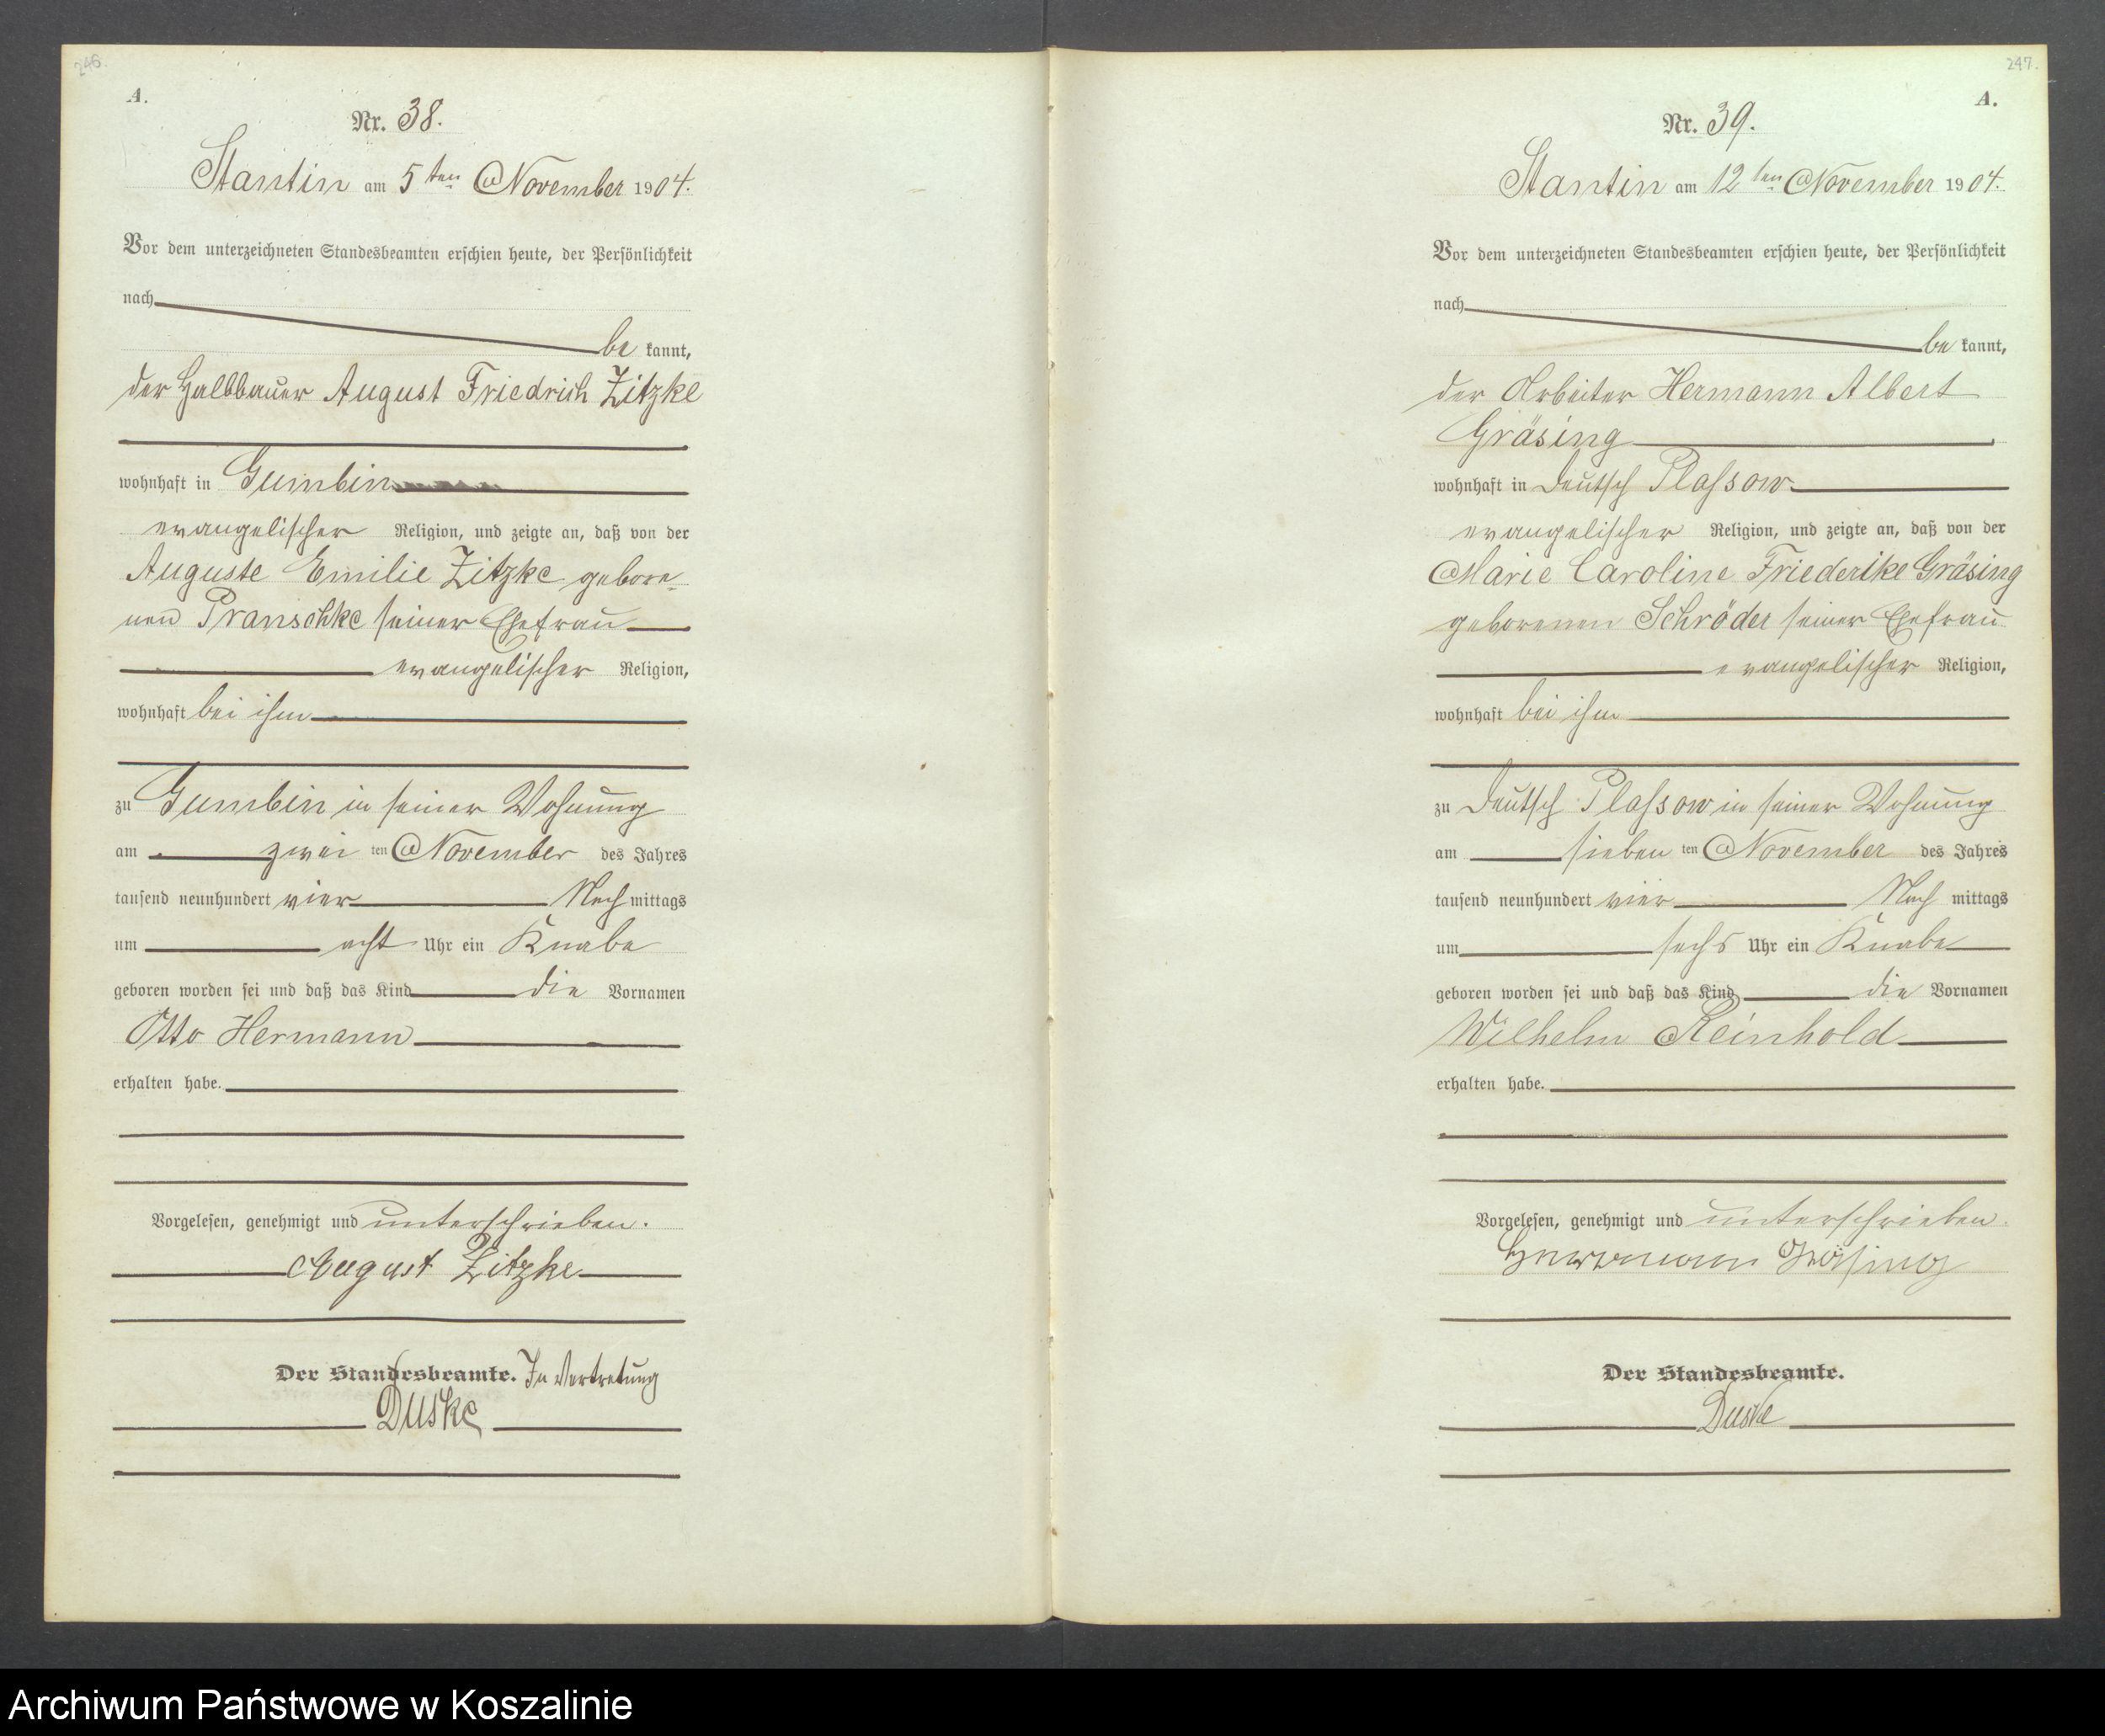 246.
A.
Nr. 38.
Stantin am 5ten November 1904.
Vor dem unterzeichneten Standesbeamten erschien heute, der Persönlichkeit
nach
be kannt,
der Halbbauer August Friedrich Zitzke
wohnhaft in Gumbin
evangelischer Religion, und zeigte an, daß von der
Auguste Emilie Zitzke gebore-
nen Pranschke seiner Ehefrau
evangelischer Religion,
wohnhaft bei ihm
zu Gumbin in seiner Wohnung
am zwei ten November des Jahres
tausend neunhundert vier Nach mittags
um acht Uhr ein Knabe
geboren worden sei und daß das Kind die Vornamen
Otto Hermann
erhalten habe.
Vorgelesen, genehmigt und unterschrieben.
August Zitzke
Der Standesbeamte. In Vertretung
Duske
247.
A.
Nr. 39.
Stantin am 12ten November 1904.
Vor dem unterzeichneten Standesbeamten erschien heute, der Persönlichkeit
nach
be kannt,
der Arbeiter Hermann Albert
Gräsing
wohnhaft in Deutsch Plassow
evangelischer Religion, und zeigte an, daß von der
Marie Caroline Friederike Gräsing
geborenen Schröder seiner Ehefrau
evangelischer Religion,
wohnhaft bei ihm
zu Deutsch Plassow in seiner Wohnung
am sieben ten November des Jahres
tausend neunhundert vier Nach mittags
um sechs Uhr ein Knabe
geboren worden sei und daß das Kind die Vornamen
Wilhelm Reinhold
erhalten habe.
Vorgelesen, genehmigt und unterschrieben.
Herrmann Gräsing
Der Standesbeamte.
Duske
Archiwum Państwowe w Koszalinie